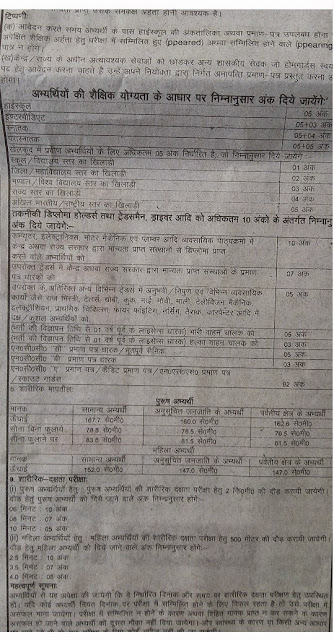 टिप्पणी:
(क) आवेदन करते समय अभ्यर्थी के पास हाईस्कूल की अंकतालिका अथवा प्रमाण-पत्र उपलब्ध होना
शैक्षिक अर्हता हेतु परीक्षा में सम्मिलित हुए (ppeared) अथवा सम्मिलित होने वाले (ppearing
पात्र न होगा।
(ख) केन्द्र / राज्य के अधीन अत्यावश्यक सेवाओं को छोड़कर अन्य शासकीय सेवक जो होमगार्डस स्वयं
पद हेतु आवेदन करना चाहते है उन्हें अपने नियोक्ता द्वारा निर्गत अनापत्ति प्रमाण-पत्र प्रस्तुत करना
होगा।
अभ्यर्थियों की शैक्षिक योग्यता के आधार पर निम्नानुसार अंक दिये जायेंगे:
हाईस्कूल 05 अंक
इण्टरमीडिएट 05+03 अंक
स्नातक 05+04 अंक
परास्नातक 05+05 अंक
खेलकूद में प्रवीण अभ्यर्थियों के लिए अधिकतम 05 अंक निर्धारित है, जो निम्नानुसार दिये जायेंगे
स्कूल / विद्यालय स्तर का खिलाड़ी 01 अंक
जिला / महाविद्यालय स्तर का खिलाड़ी 02 अंक
मण्डल / विश्व विद्यालय स्तर का खिलाड़ी 03 अंक
राज्य स्तर का खिलाड़ी 04 अंक
अखिल भारतीय / राष्ट्रीय स्तर का खिलाड़ी 05 अंक
तकनीकी डिप्लोमा होल्डर्स तथा ट्रेडसमैन, ड्राइवर आदि को अधिकतम 10 अंको के अंतर्गत निम्नानु
अंक दिये जायेंगे:
कम्प्यूटर, इलेक्ट्रॉनिक्स, मोटर मैकेनिक एवं प्लम्बर आदि व्यवसायिक पाठ्यक्रमों में 10 अंक
केन्द्र अथवा राज्य सरकार द्वारा मान्यता प्राप्त संस्थानों से डिप्लोमा प्राप्त
करने वाले अभ्यर्थियों को
उपरोक्त ट्रेडस में केन्द्र अथवा राज्य सरकार द्वारा मान्यता प्राप्त संस्थाओं के प्रमाण 07 अंक
पत्र धारकों को
उपरोक्त के अतिरिक्त अन्य विभिन्न ट्रेडस में अनुभवी / निपुण एवं विभिन्न व्यवसायिक 05 अंक
कार्यों जैसे राज मिस्त्री, टेलर्स, धोबी, कुक, नाई, मोची, माली, टेलीविजन मैकेनिक
इलेक्ट्रीशियन, प्राथमिक चिकित्सा, फायर फाइटिंग, नर्सिंग, वेल्डर, कारपेन्टर आदि में
दक्ष / कुशल अभ्यर्थियों को
(भर्ती की विज्ञापन तिथि से 01 वर्ष पूर्व के लाइसेन्स धारक) भारी वाहन चालक को 05 अंक
(भर्ती की विज्ञापन तिथि से 01 वर्ष पूर्व के लाइसेन्स धारक) हल्का वाहन चालक को 03 अंक
एन०सी०सी० 'सी' प्रमाण पत्र धारक / भूतपूर्व सैनिक 05 अंक
एन०सी०सी० 'बी' प्रमाण पत्र धारक 03 अंक
एन०सी०सी० 'ए' प्रमाण पत्र / कैडिट प्रमाण पत्र / एन०एस०एस० प्रमाण पत्र
/ स्काउट गाईडस 02 अंक
शारीरिक मापतौल:
पुरूष अभ्यर्थी
मानक सामान्य अभ्यर्थी अनुसूचित जनजाति के अभ्यर्थी पर्वतीय क्षेत्र के अभ्यर्थी
ऊँचाई 167.7 से०मी० 160.0 से०मी० 162.6 से०मी०
सीना बिना फुलाये 78.8 से०मी० 76.5 से०मी० 76.5 से०मी०
सीना फुलाने पर 83.8 से०मी० 81.5 से०मी० 81.5 से०मी०
महिला अभ्यर्थी
मानक सामान्य अभ्यर्थी अनुसूचित जनजाति के अभ्यर्थी पर्वतीय क्षेत्र के अभ्यर्थी
ऊँचाई 152.0 से०मी० 147.0 से०मी० 147.0 से०मी०
9. शारीरिक-दक्षता परीक्षा:
(i) पुरूष अभ्यर्थियों हेतु: पुरूष अभ्यर्थियों की शारीरिक दक्षता परीक्षा हेतु 2 कि०मी० की दौड़ करायी जायेगी।
दौड़ हेतु पुरूष अभ्यर्थी को दिये जाने वाले अंक निम्नानुसार होंगे:-
06 मिनट : 10 अंक
08 मिनट : 07 अंक
10 मिनट : 05 अंक
(ii) महिला अभ्यर्थियों हेतु: महिला अभ्यर्थियों की शारीरिक दक्षता परीक्षा हेतु 500 मीटर की दौड़ करायी जायेगी।
दौड़ हेतु महिला अभ्यर्थी को दिये जाने वाले अंक निम्नानुसार होंगे:-
2.5 मिनट : 10 अंक
3.5 मिनट : 07 अंक
4.0 मिनट : 05 अंक
महत्वपूर्ण सूचना:
अभ्यर्थियों से यह अपेक्षा की जायेगी कि वे निर्धारित दिनांक और समय पर शारीरिक दक्षता परीक्षण हेतु उपस्थित
हों। यदि कोई अभ्यर्थी नियत दिनांक पर परीक्षा में सम्मिलित होने के लिए विफल रहता है तो उसे परीक्षा में
असफल माना जायेगा। परीक्षा में सम्मिलित न होने के कारण अथवा वांछित मानक प्राप्त न कर सकने के कारण
असफल हो जाने वाले अभ्यर्थी को दूसरा मौका नहीं दिया जायेगा।